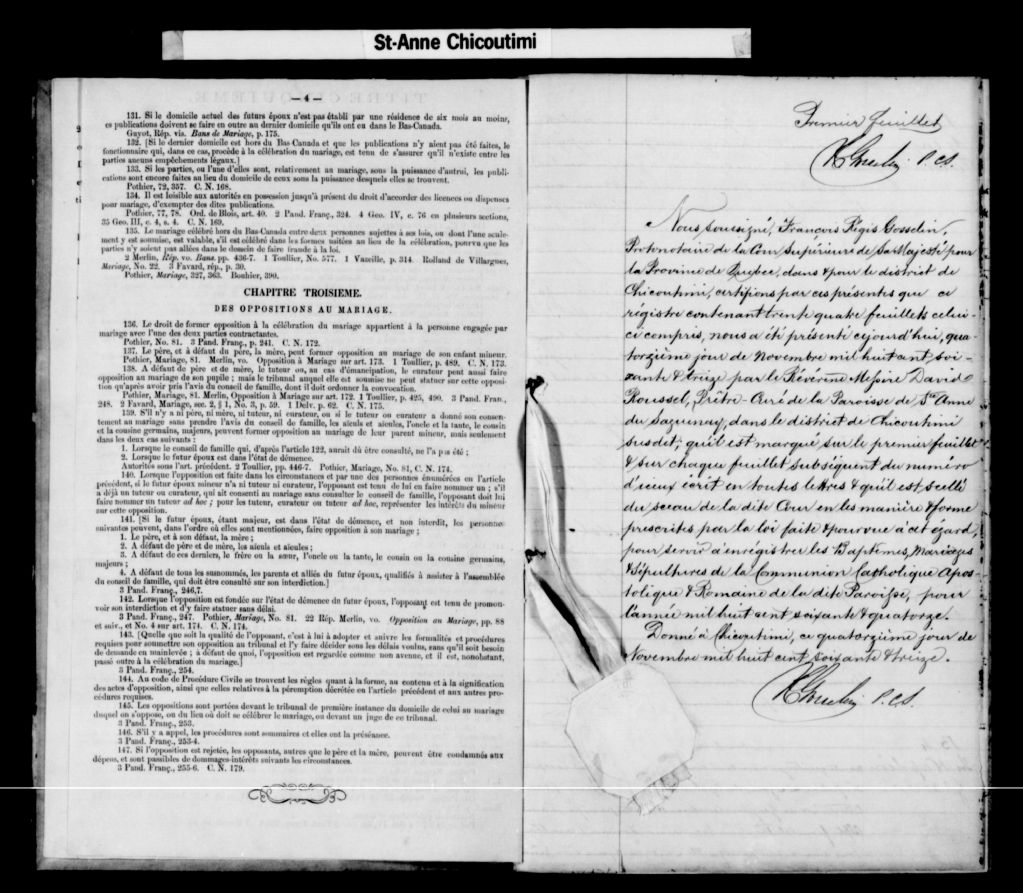 St-Anne Chicoutimi
— 4 —
131. Si le domicile actuel des futurs époux n'est pas établi par une résidence de six mois au moins,
ces publications doivent se faire en outre au dernier domicile qu'ils ont eu dans le Bas-Canada.
Guyot, Rép. vis. Bans de Mariage, p. 175.
132. [Si le dernier domicile est hors du Bas Canada et que les publications n'y aient pas été faites, le
fonctionnaire qui, dans ce cas, procède à la célébration du mariage, est tenu de s'assurer qu'il n'existe entre les
parties aucuns empêchements légaux.]
133. Si les parties, ou l'une d'elles sont, relativement au mariage, sous la puissance d'autrui, les publi-
cations sont encore faites au lieu du domicile de ceux sous la puissance desquels elles se trouvent.
Pothier, 72, 357. C. N. 168.
134. Il est loisible aux autorités en possession jusqu'à présent du droit d'accorder des licences ou dispenses
pour mariage, d'exempter des dites publications.
Pothier, 77, 78. Ord. de Blois, art. 40. 2 Pand. Franç., 324. 4 Geo. IV, c. 76 en plusieurs sections,
35 Geo. III, c. 4, s. 4. C. N. 169.
135. Le mariage célébré hors du Bas-Canada entre deux personnes sujettes à ses lois, ou dont l'une seule-
ment y est soumise, est valable, s'il est célébré dans les formes usitées au lieu de la célébration, pourvu que les
parties n'y soient pas allées dans le dessein de faire fraude à la loi.
2 Merlin, Rép. vo. Bans, pp. 436-7. 1 Toullier, No. 577. 1 Vazeille, p. 314. Rolland de Villargues,
Mariage, No. 22. 3 Favard, rép., p. 30.
Pothier, Mariage, 327, 363. Bouhier, 390.
CHAPITRE TROISIEME.
DES OPPOSITIONS AU MARIAGE.
136. Le droit de former opposition à la célébration du mariage appartient à la personne engagée par
mariage avec l'une des deux parties contractantes.
Pothier, No. 81. 3 Pand. Franç., p. 241. C. N. 172.
137. Le père, et à défaut du père, la mère, peut former opposition au mariage de son enfant mineur.
Pothier, Mariage, 81. Merlin, vo. Opposition à Mariage sur art. 173. 1 Toullier, p. 489. C. N. 173.
138. A défaut de père et de mère, le tuteur ou, au cas d'émancipation, le curateur peut aussi faire
opposition au mariage de son pupille ; mais le tribunal auquel elle est soumise ne peut statuer sur cette opposi-
tion qu'après avoir pris l'avis du conseil de famille, dont il doit ordonner la convocation.
Pothier, Mariage, 81. Merlin, Opposition à Mariage sur art. 172. 1 Toullier, p. 425, 490. 3 Pand. Fran.,
248. 2 Favard, Mariage, sec. 2, § 1, No. 3, p. 59. 1 Delv. p. 62. C. N. 175.
139. S'il n'y a ni père, ni mère, ni tuteur, ni curateur, ou si le tuteur ou curateur a donné son consen-
tement au mariage sans prendre l'avis du conseil de famille, les aïeuls et aïeules, l'oncle et la tante, le cousin
et la cousine germains, majeurs, peuvent former opposition au mariage de leur parent mineur, mais seulement
dans les deux cas suivants :
1. Lorsque le conseil de famille qui, d'après l'article 122, aurait dû être consulté, ne l'a pas été ;
2. Lorsque le futur époux est dans l'état de démence.
Autorités sous l'art. précédent. 2 Toullier, pp. 446-7. Pothier, Mariage, No. 81, C. N. 174.
140. Lorsque l'opposition est faite dans les circonstances et par une des personnes énumérées en l'article
précédent, si le futur époux mineur n'a ni tuteur ni curateur, l'opposant est tenu de lui en faire nommer un ; s'il
a déjà un tuteur ou curateur, qui ait consenti au mariage sans consulter le conseil de famille, l'opposant doit lui
faire nommer un tuteur ad hoc ; pour les tuteur, curateur ou tuteur ad hoc, représenter les intérêts du mineur
sur cette opposition.
141. [Si le futur époux, étant majeur, est dans l'état de démence, et non interdit, les personnes
suivantes peuvent, dans l'ordre où elles sont mentionnées, faire opposition à son mariage ;
1. Le père, et à son défaut, la mère ;
2. A défaut de père et de mère, les aïeuls et aïeules ;
3. A défaut de ces derniers, le frère ou la sœur, l'oncle ou la tante, le cousin ou la cousine germains,
majeurs ;
4. A défaut de tous les susnommés, les parents et alliés du futur époux, qualifiés à assister à l'assemblée
du conseil de famille, qui doit être consulté sur son interdiction.]
3 Pand. Franç., 246,7.
142. Lorsque l'opposition est fondée sur l'état de démence du futur époux, l'opposant est tenu de promou-
voir son interdiction et d'y faire statuer sans délai.
3 Pand. Franç., 247. Pothier, Mariage, No. 81. 22 Rép. Merlin, vo. Opposition au Mariage, pp. 88
et suiv., et No. 4 sur art. 174. C. N. 174.
143. [Quelle que soit la qualité de l'opposant, c'est à lui à adopter et suivre les formalités et procédures
requises pour soumettre son opposition au tribunal et l'y faire décider sous les délais voulus, sans qu'il soit besoin
de demande en mainlevée ; à défaut de quoi, l'opposition est regardée comme non avenue, et il est, nonobstant,
passé outre à la célébration du mariage.]
3 Pand. Franç., 254.
144. Au code de Procédure Civile se trouvent les règles quant à la forme, au contenu et à la signification
des actes d'opposition, ainsi que celles relatives à la péremption décrétée en l'article précédent et aux autres pro-
cédures requises.
145. Les oppositions sont portées devant le tribunal de première instance du domicile de celui au mariage
duquel on s'oppose, ou du lieu où doit se célébrer le mariage, ou devant un juge de ce tribunal.
3 Pand. Franç., 253.
146. S'il y a appel, les procédures sont sommaires et elles ont la préséance.
3 Pand. Franç., 253-4.
147. Si l'opposition est rejetée, les opposants, autres que le père et la mère, peuvent être condamnés aux
dépens, et sont passibles de dommages-intérêts suivants les circonstances.
3 Pand. Franç., 255-6. C. N. 179.
Premier feuillet
P.C.S.
Nous, soussigné, François Régis Gosselin,
Protonotaire de la Cour Supérieure de Sa Majesté pour
la Province de Quebec, dans & pour le district de
Chicoutimi, certifions par ces présentes que ce
registre contenant trente quatre feuillets celui-
ci compris, nous a été présenté cejourd'hui, qua-
torzième jour de Novembre mil huit cent soi-
xante & treize par le Révérend Messire David
Roussel, Prêtre-Curé de la Paroisse de Ste Anne
du Saguenay, dans le district de Chicoutimi
susdit; qu'il est marqué sur le premier feuillet
& sur chaque feuillet subséquent du numéro
d'iceux écrit en toutes lettres & qu'il est scellé
du sceau de la dite Cour en les manière & forme
prescrites par la loi faite & pourvue à cet égard,
pour servir à enrégistrer les Baptêmes, Mariages
& Sépultures de la Communion Catholique Apos-
tolique & Romaine de la dite Paroisse, pour
l'année mil huit cent soixante & quatorze.
Donné à Chicoutimi, ce quatorzième jour de
Novembre mil huit cent soixante & treize.
P.C.S.